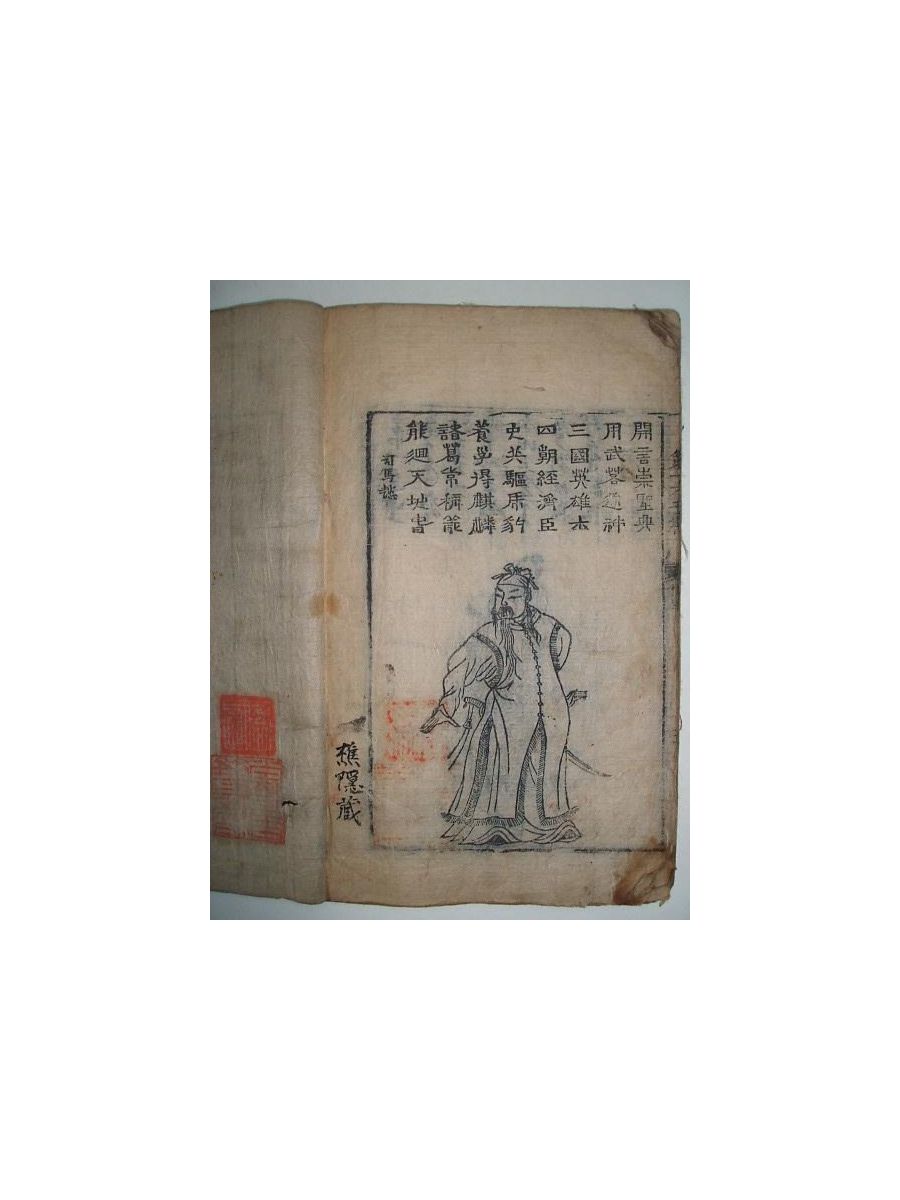 開言崇聖典
用武若通神
三國英雄士
四朝經濟臣
屯兵驅虎豹
養子得麒麟
諸葛常稱羨
能迴天地書
司馬懿
樵隱藏